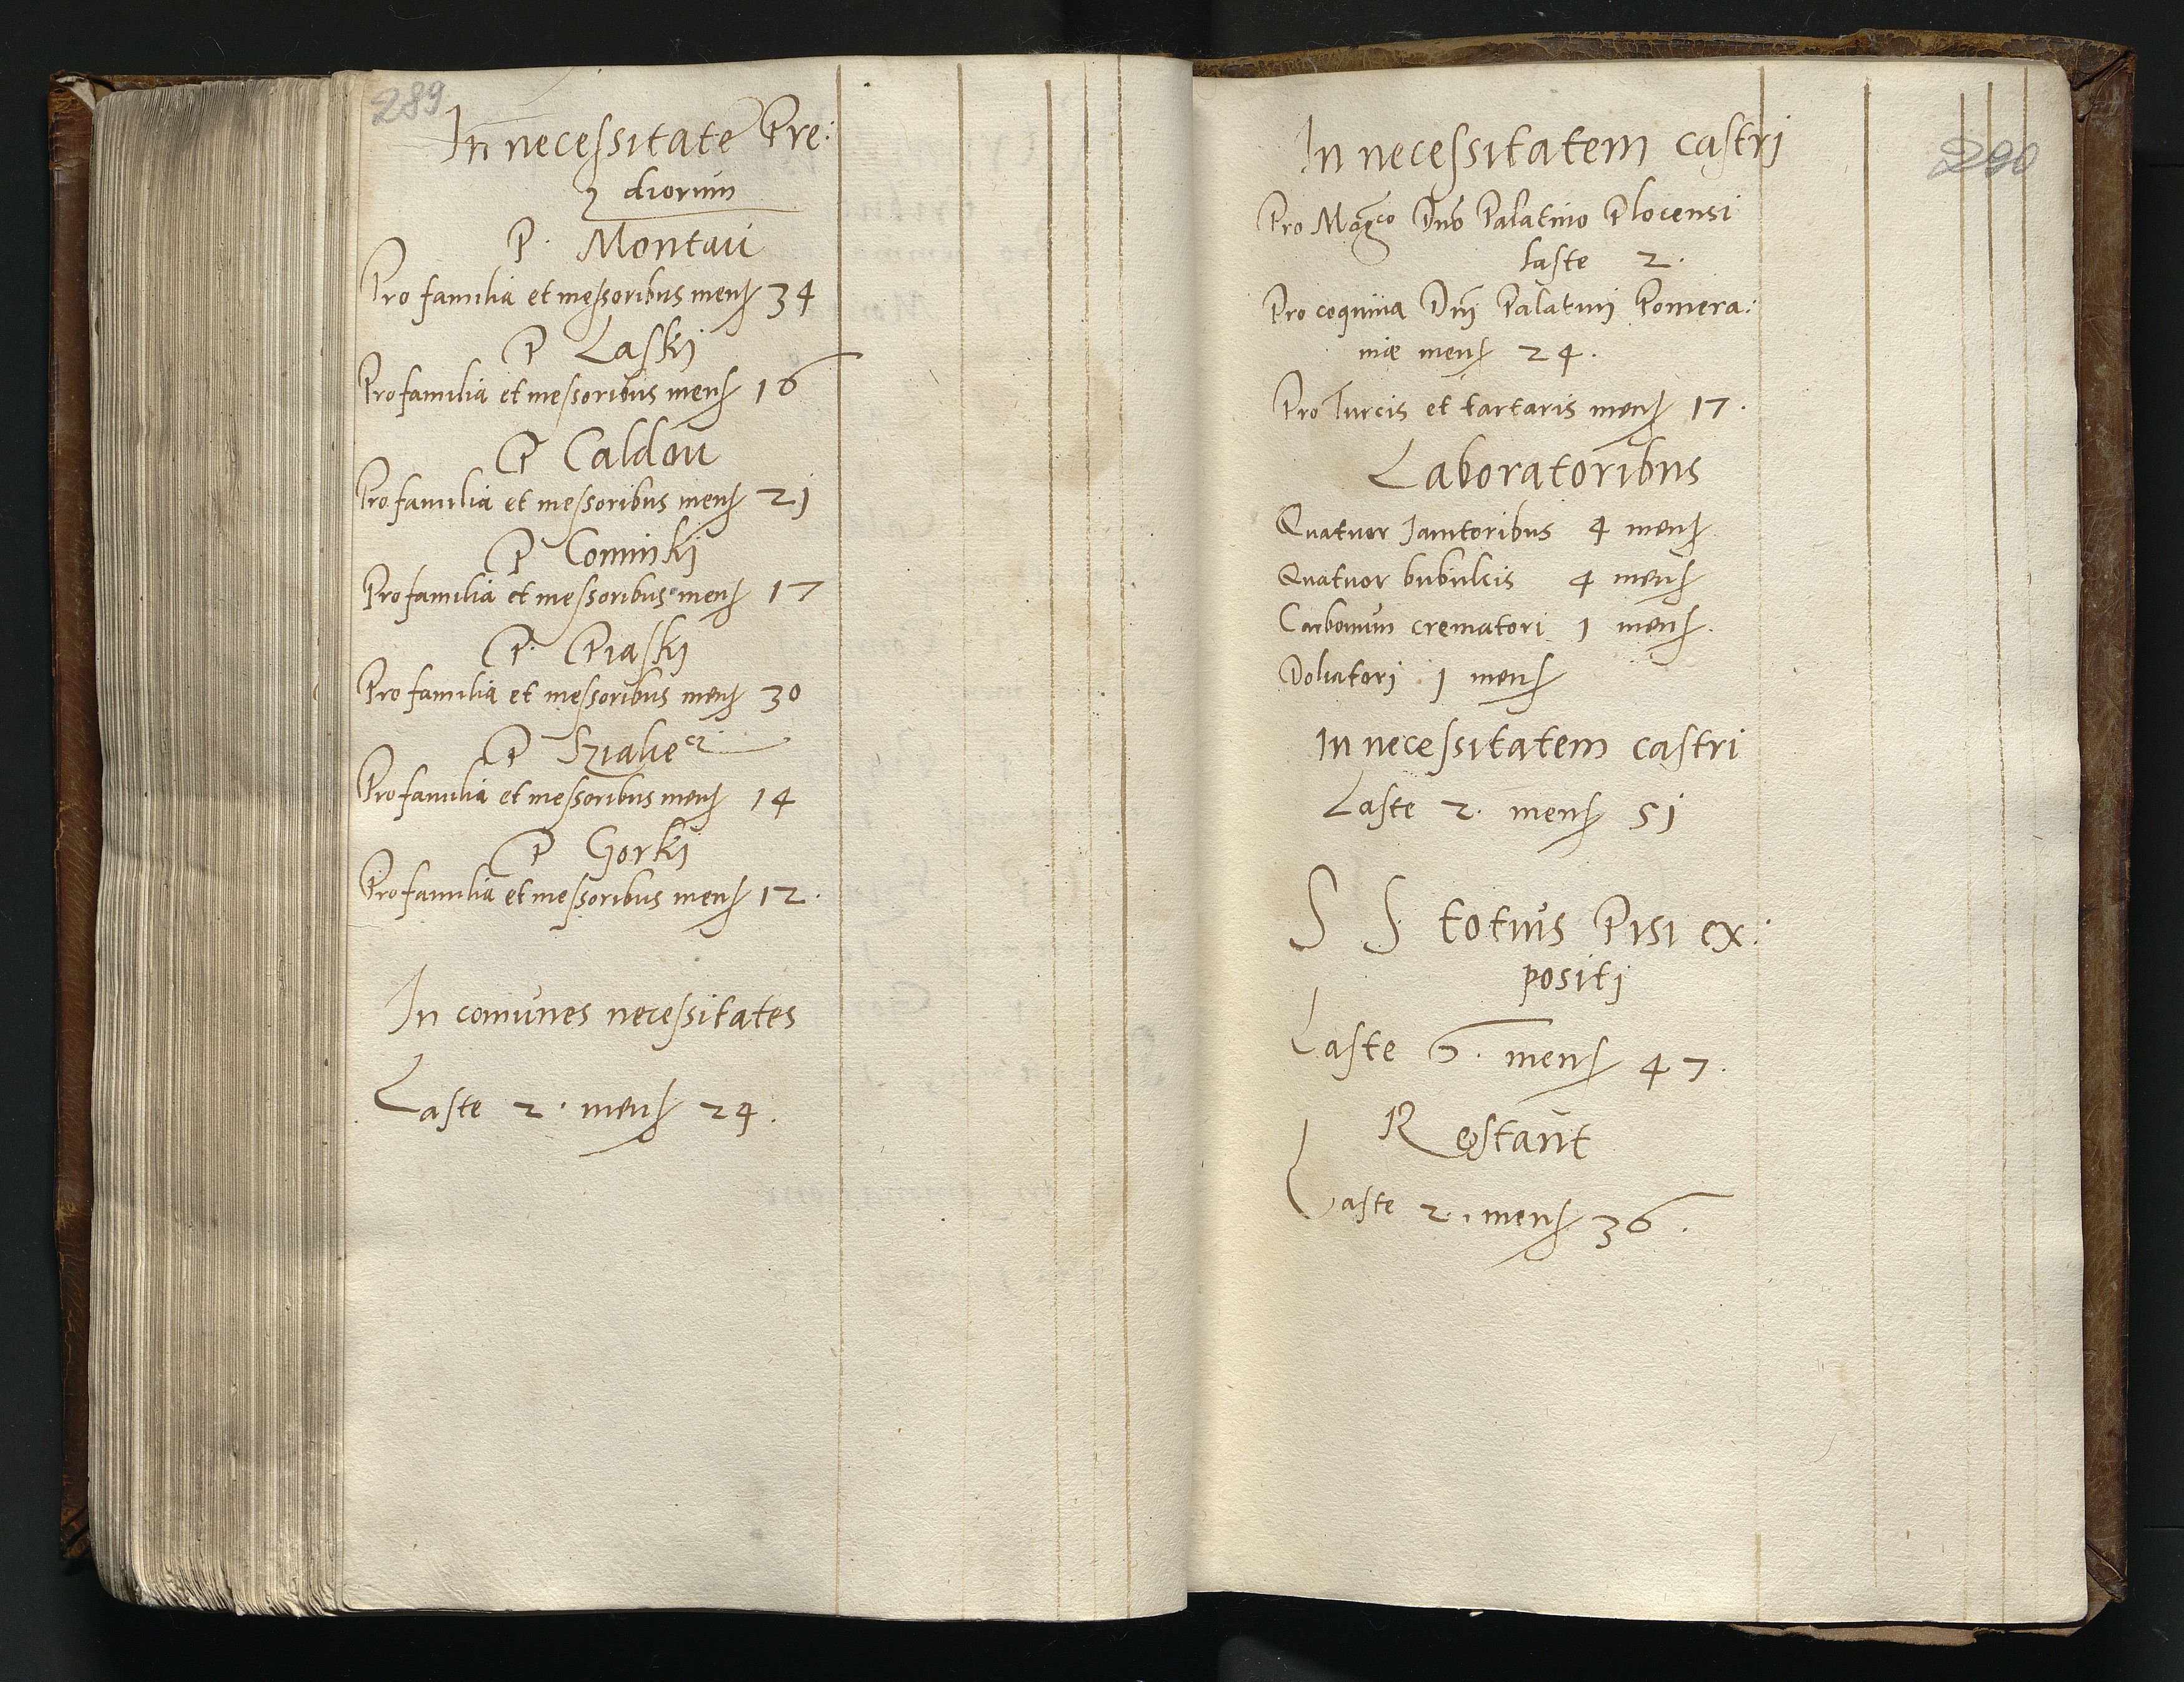 289
In necessitatē Pre:
diorum
P. Montaui
Pro familia et messoribus mens 34
P Laskj
Pro familia et messoribus mens 16
P Caldou
Pro familia et messoribus mens 21
P Cominskj
Pro familia et messoribus mens 17
P. Piaskj
Pro familia et messoribus mens 30
P
Pro familia et messoribus mens 14
P Gorkj
Pro familia et messoribus mens 12.
In comunes necessitates
Laste 2. mens 24.
290
In necessitatem castrj
Pro Magco Dno Palatino Plocensi
laste 2.
Pro coquina Dnj Palatinj Pomera:
niæ mens 24.
Pro Turcis et tartaris mens 17.
Laboratoribus
Quatuor Janitoribus 4 mens
Quatuor bubulcis 4 mens
Carbonum crematori 1 mens.
Doliatorj 1 mens
In necessitatem castri
Laste 2. mens 51
S S totius Pisi ex:
positj
Laste 6. mens 47.
Restant
Laste 2. mens 36.